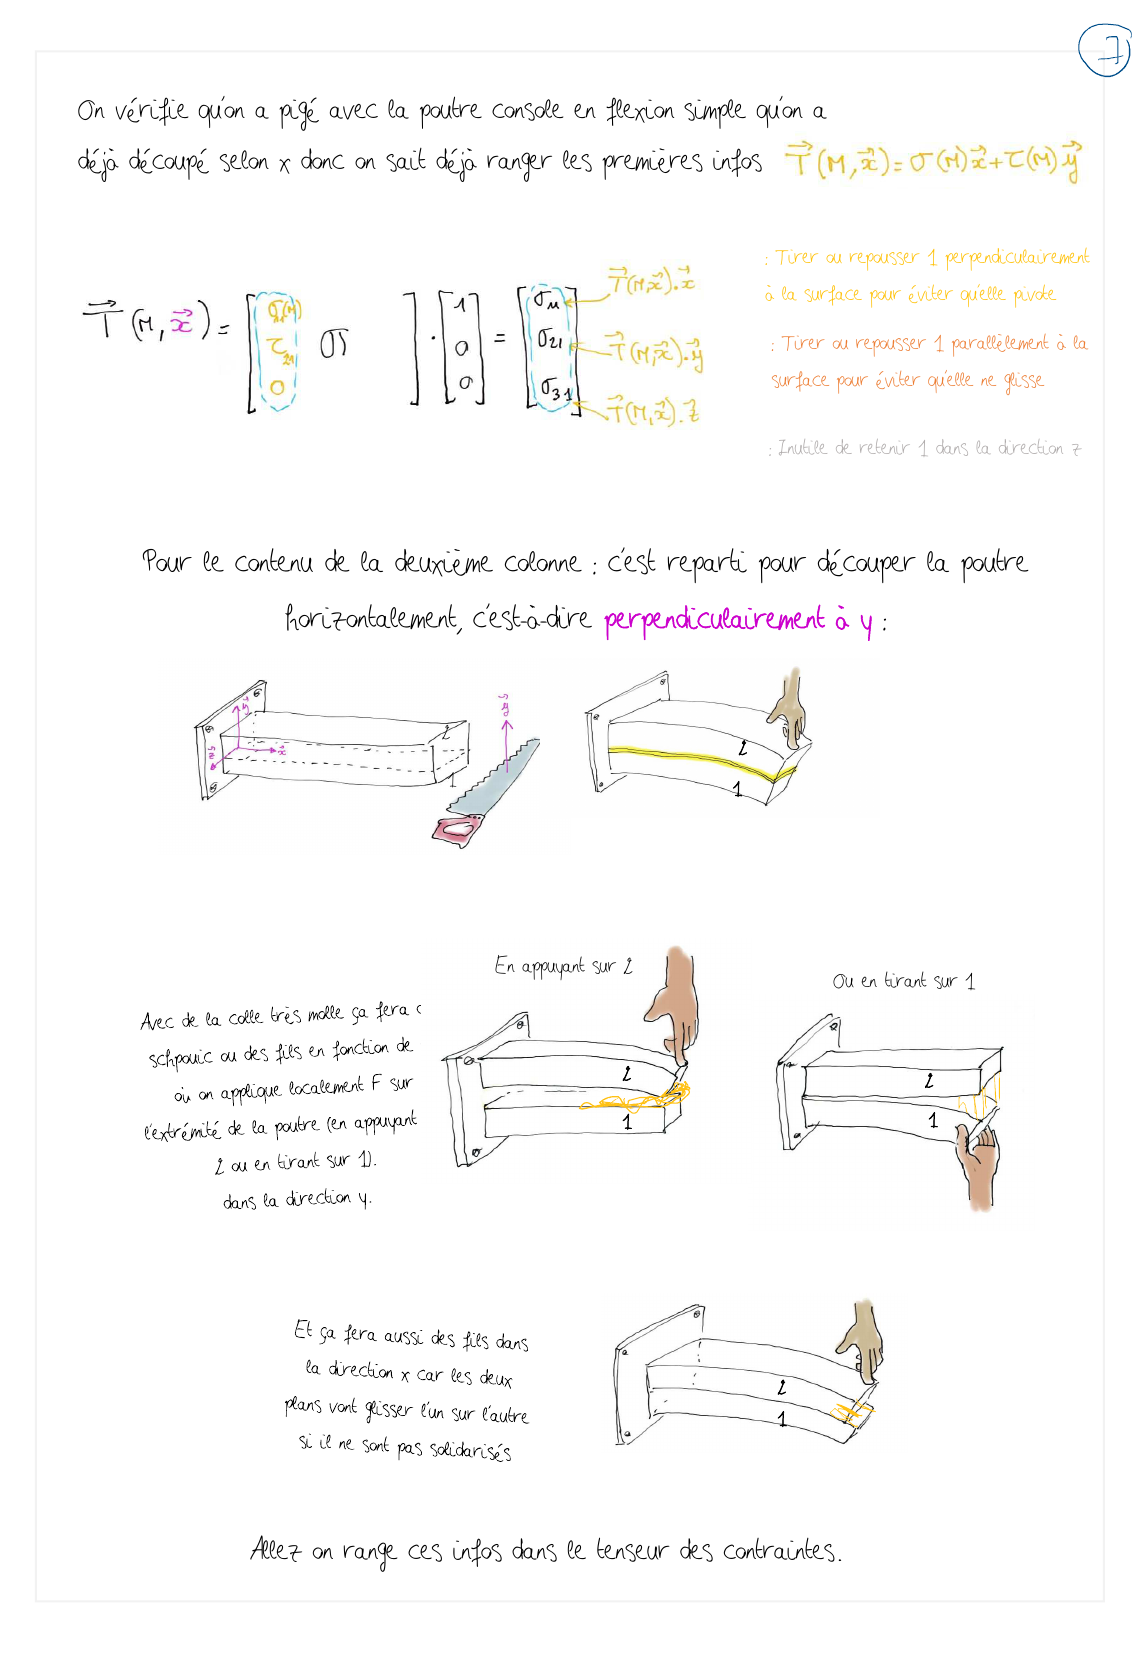 7
On vérifie qu'on a pigé avec la poutre console en flexion simple qu'on a
déjà découpé selon x donc on sait déjà ranger les premières infos T(M,x)=σ(M)x+τ(M)y
: Tirer ou repousser 1 perpendiculairement
à la surface pour éviter qu'elle pivote
: Tirer ou repousser 1 parallèlement à la
surface pour éviter qu'elle ne glisse
: Inutile de retenir 1 dans la direction z
T(M,x) = [σ11(M) τ21 0 σ] · [1 0 0] = [σ11 σ21 σ31]
T(M,x).x
T(M,x).y
T(M,x).z
Pour le contenu de la deuxième colonne : c'est reparti pour découper la poutre
horizontalement, c'est-à-dire perpendiculairement à y :
y
x
z
2
1
y
2
1
En appuyant sur 2
Ou en tirant sur 1
Avec de la colle très molle ça fera c
schpouic ou des fils en fonction de
où on applique localement F sur
l'extrémité de la poutre (en appuyant
2 ou en tirant sur 1).
dans la direction y.
2
1
2
1
Et ça fera aussi des fils dans
la direction x car les deux
plans vont glisser l'un sur l'autre
si il ne sont pas solidarisés
2
1
Allez on range ces infos dans le tenseur des contraintes.